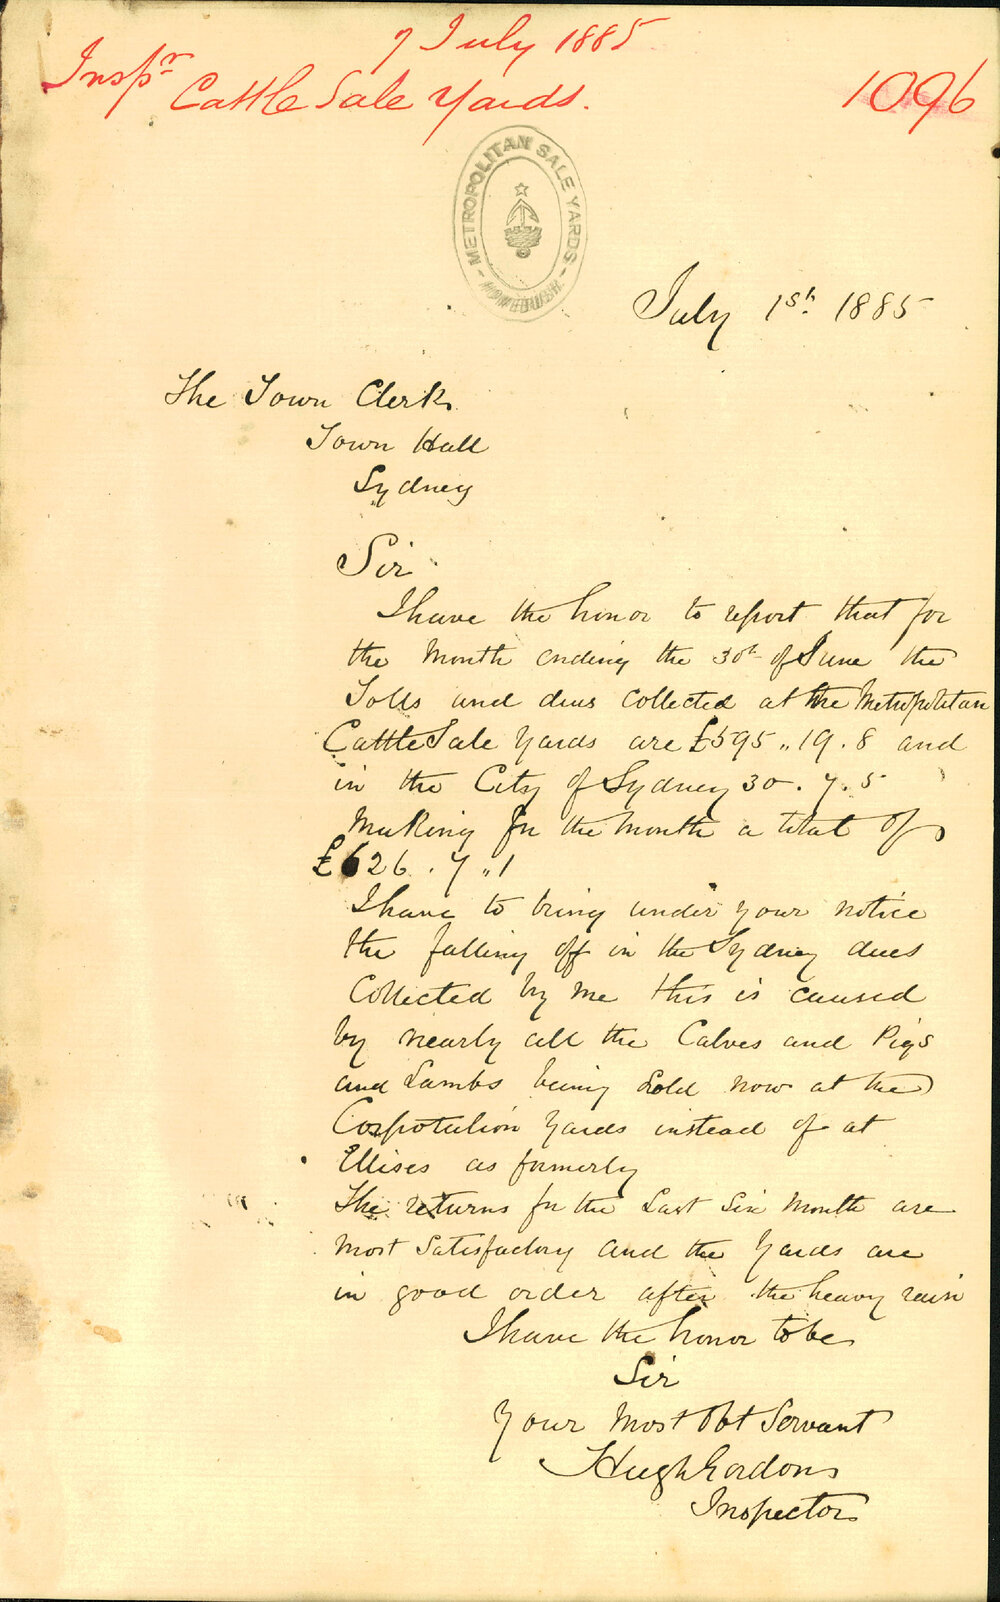 7 July 1885
Inspr Cattle Sale Yards.
1096
METROPOLITAN SALE YARDS
HOMEBUSH
July 1st. 1885
The Town Clerk
Town Hall
Sydney
Sir
I have the honor to report that for
the Month ending the 30th of June the
Tolls and dues collected at the Metropolitan
Cattle Sale Yards are £595 " 19 . 8 and
in the City of Sydney 30 . 7 . 5
Making for the Month a total of
£626 . 7 " 1
I have to bring under your notice
the falling off in the Sydney dues
Collected by me this is caused
by nearly all the Calves and Pigs
and Lambs being Sold now at the
Corporation Yards instead of at
Ellises as formerly
The returns for the Last Six Month are
Most Satisfactory and the Yards are
in good order after the heavy rain
I have the honor to be
Sir
Your Most Obt Servant
Hugh Gordon
Inspector